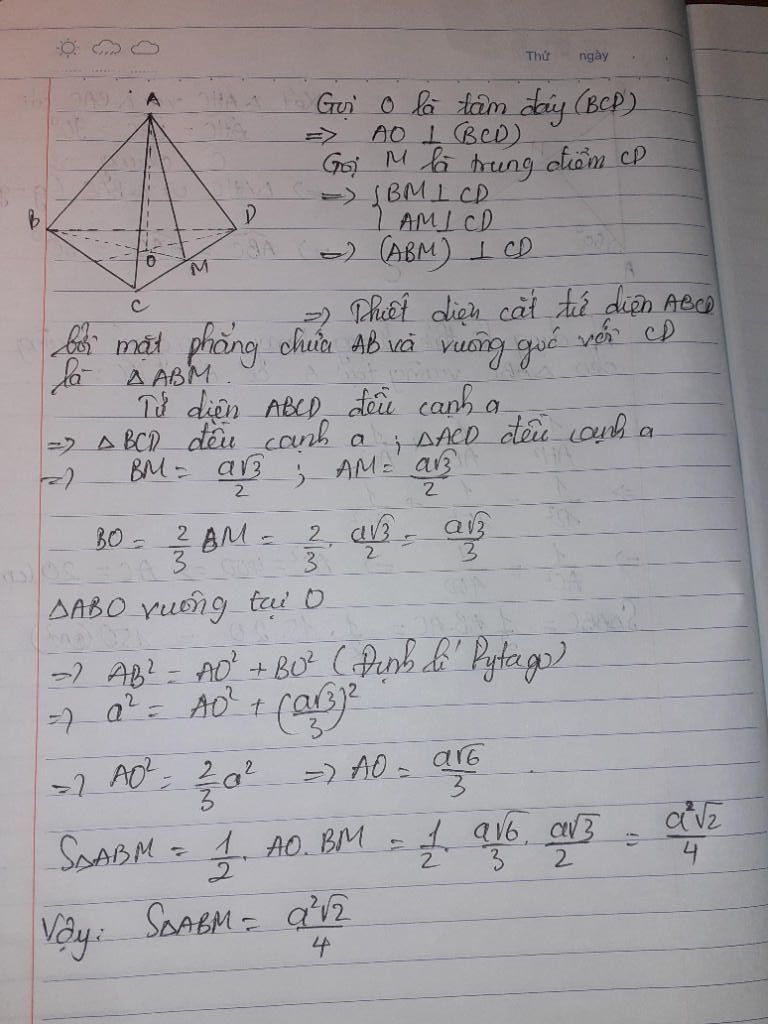 Thứ ngày
A
B
D
O
M
C
Gọi O là tâm đáy (BCD)
=> AO ⊥ (BCD)
Gọi M là trung điểm CD
=> { BM ⊥ CD
AM ⊥ CD
=> (ABM) ⊥ CD
=> Thiết diện cắt tứ diện ABCD
bởi mặt phẳng chứa AB và vuông góc với CD
là △ABM.
Tứ diện ABCD đều cạnh a
=> △BCD đều cạnh a ; △ACD đều cạnh a
=> BM = a√3/2 ; AM = a√3/2
BO = 2/3 BM = 2/3 . a√3/2 = a√3/3
△ABO vuông tại O
=> AB² = AO² + BO² (Định lí Pytago)
=> a² = AO² + (a√3/3)²
=> AO² = 2/3 a² => AO = a√6/3 .
S△ABM = 1/2 . AO . BM = 1/2 . a√6/3 . a√3/2 = a²√2/4
Vậy: S△ABM = a²√2/4